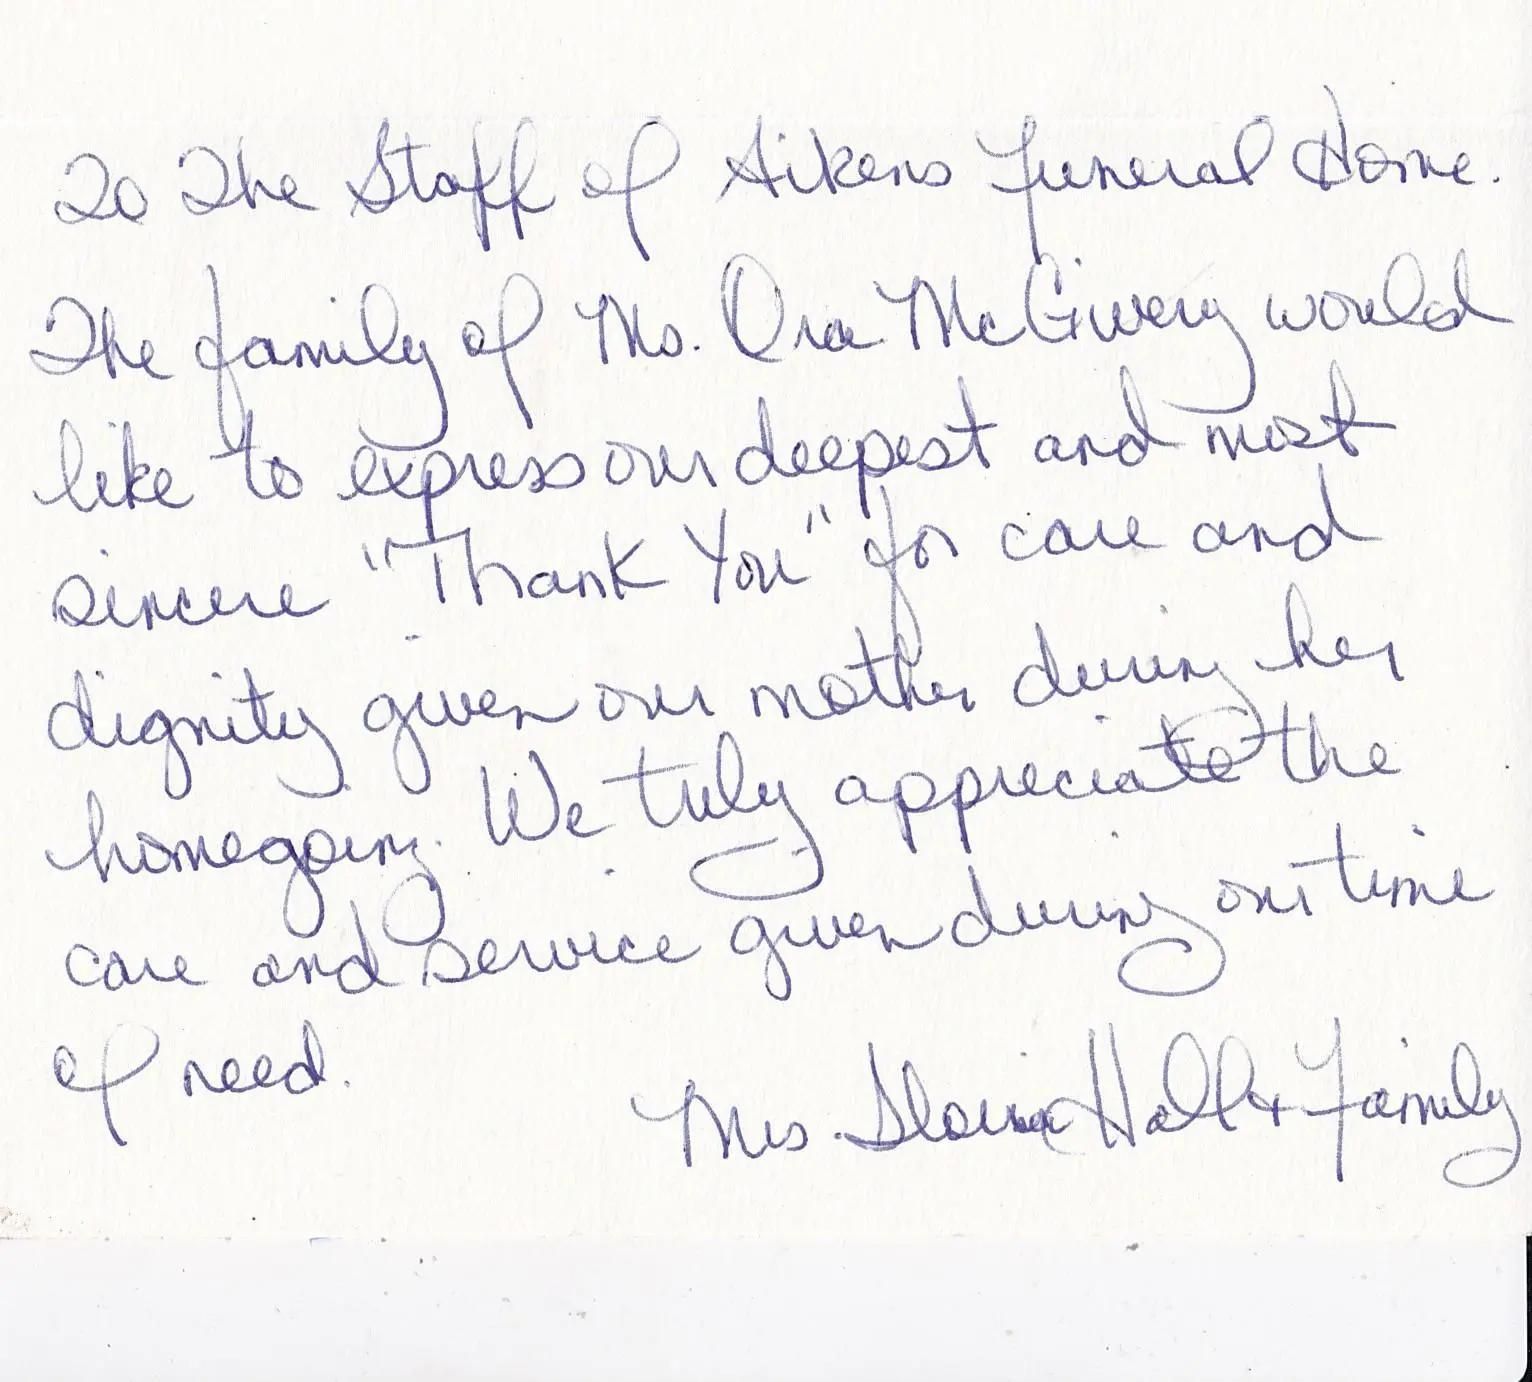 To The Staff of Aikens Funeral Home.
The family of Ms. Ora McGivery would
like to express our deepest and most
sincere "Thank You" for care and
dignity given our mother during her
homegoing. We truly appreciate the
care and service given during our time
of need.
Mrs. Gloria Hall & Family